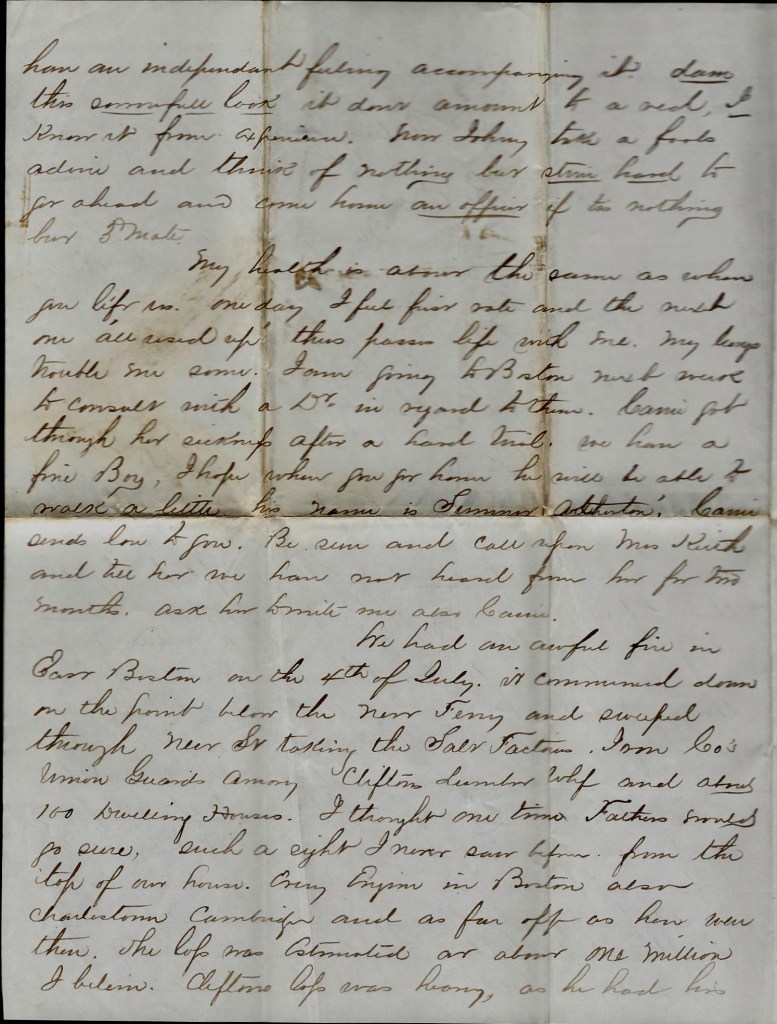 have an independant feeling accompanying it. dam
this sorrowfull look it dont amount to a red, I
Know it from experience. Now Johny take a fools
advice and think of nothing but strive hard to
go ahead and come home an officer if tis nothing
but 3d Mate
My health is about the same as when
you left us. one day I feel first rate and the next
one "all used up" thus passes life with me. My lungs
trouble me some. I am going to Boston next week
to consult with a Dr. in regard to them. Carrie got
through her sickness after a hard trial. we have a
fine Boy, I hope when you get home he will be able to
walk a little his name is Atherton. Carrie
sends love to you. Be sure and call upon Mrs Keith
and tell her we have not heard from her for two
months. ask her to write me also Carrie.
We had an awful fire in
East Boston on the 4th of July. it commenced down
on the point below the New Ferry and sweeped
through New St taking the Salt Factories. Iron Co's
Union Guards Armory Cliftons Lumber Whf and about
100 Dwelling Houses. I thought one time Fathers would
go sure, such a sight I never saw before. from the
top of our house. Every Engine in Boston also
Charlestown Cambridge and as far off as here were
there. The loss was estimated at about one million
I believe. Cliftons loss was heavy, as he had his